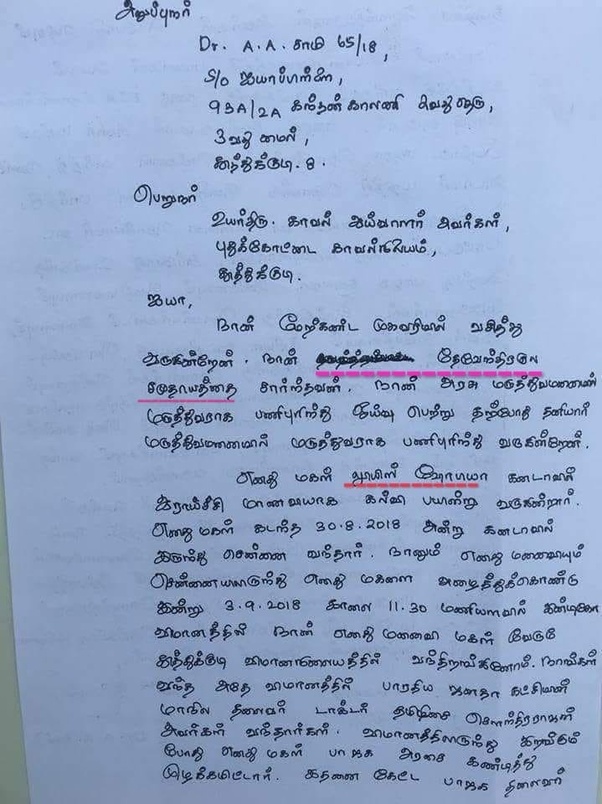 அனுப்புநர்
Dr. A.A. சாமி 65/18,
S/o ஐயாப்பிள்ளை,
93A/2A கந்தன் காலணி 2வது தெரு,
3வது மைல்,
தூத்துக்குடி. 8.
பெறுநர்
உயர்திரு. காவல் ஆய்வாளர் அவர்கள்,
புதுக்கோட்டை காவல்நிலையம்,
தூத்துக்குடி.
ஐயா,
நான் மேற்கண்ட முகவரியில் வசித்து
வருகின்றேன். நான் தேவேந்திரகுல
சமுதாயத்தை சார்ந்தவன். நான் அரசு மருத்துவமனையில்
மருத்துவராக பணிபுரிந்து ஓய்வு பெற்று தற்போது தனியார்
மருத்துவமனையில் மருத்துவராக பணிபுரிந்து வருகின்றேன்.
எனது மகள் லூயிஸ் சோபியா கனடாவில்
ஆராய்ச்சி மாணவியாக கல்வி பயின்று வருகின்றார்.
எனது மகள் கடந்த 30.8.2018 அன்று கனடாவில்
இருந்து சென்னை வந்தார். நானும் எனது மனைவியும்
சென்னையிலிருந்து எனது மகளை அழைத்துக்கொண்டு
இன்று 3.9.2018 காலை 11.30 மணியளவில் இண்டிகோ
விமானத்தில் நான் எனது மனைவி மகள்
தூத்துக்குடி விமானநிலையத்தில் வந்திறங்கினோம். நாங்கள்
வந்த அதே விமானத்தில் பாரதிய ஜனதா கட்சியின்
மாநில தலைவர் டாக்டர் தமிழிசை சௌந்திரராஜன்
அவர்கள் வந்தார்கள். விமானத்திலிருந்து இறங்கும்
போது எனது மகள் பாஜக அரசை கண்டித்து
முழக்கமிட்டார். இதனை கேட்ட பாஜக தலைவர்